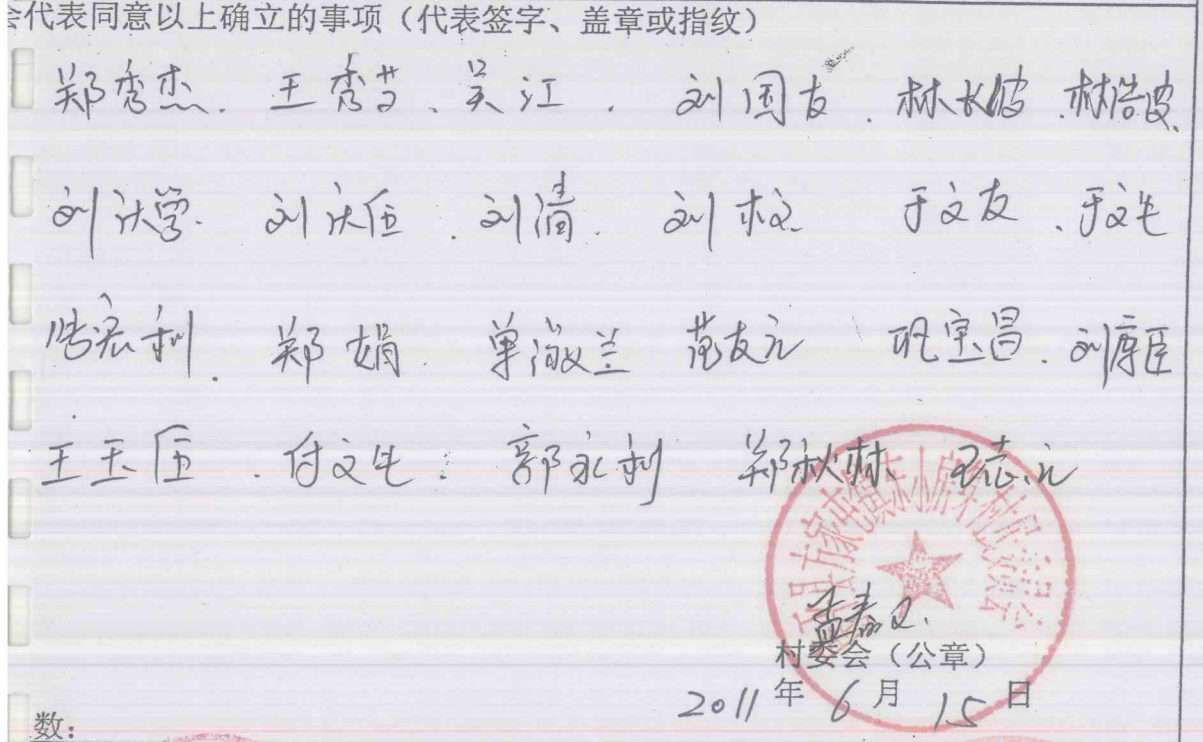 会代表同意以上确立的事项（代表签字、盖章或指纹）
郑秀杰 王秀芳 吴江 刘国友 林长波 林浩波
刘庆学 刘庆伍 刘清 刘权 于文友 于文生
宏利 郑娟 单淑兰 范友元 巩宝昌 刘库臣
王玉伍 付文生 郭永利 郑秋林
村委会（公章）
2011年6月15日
数：